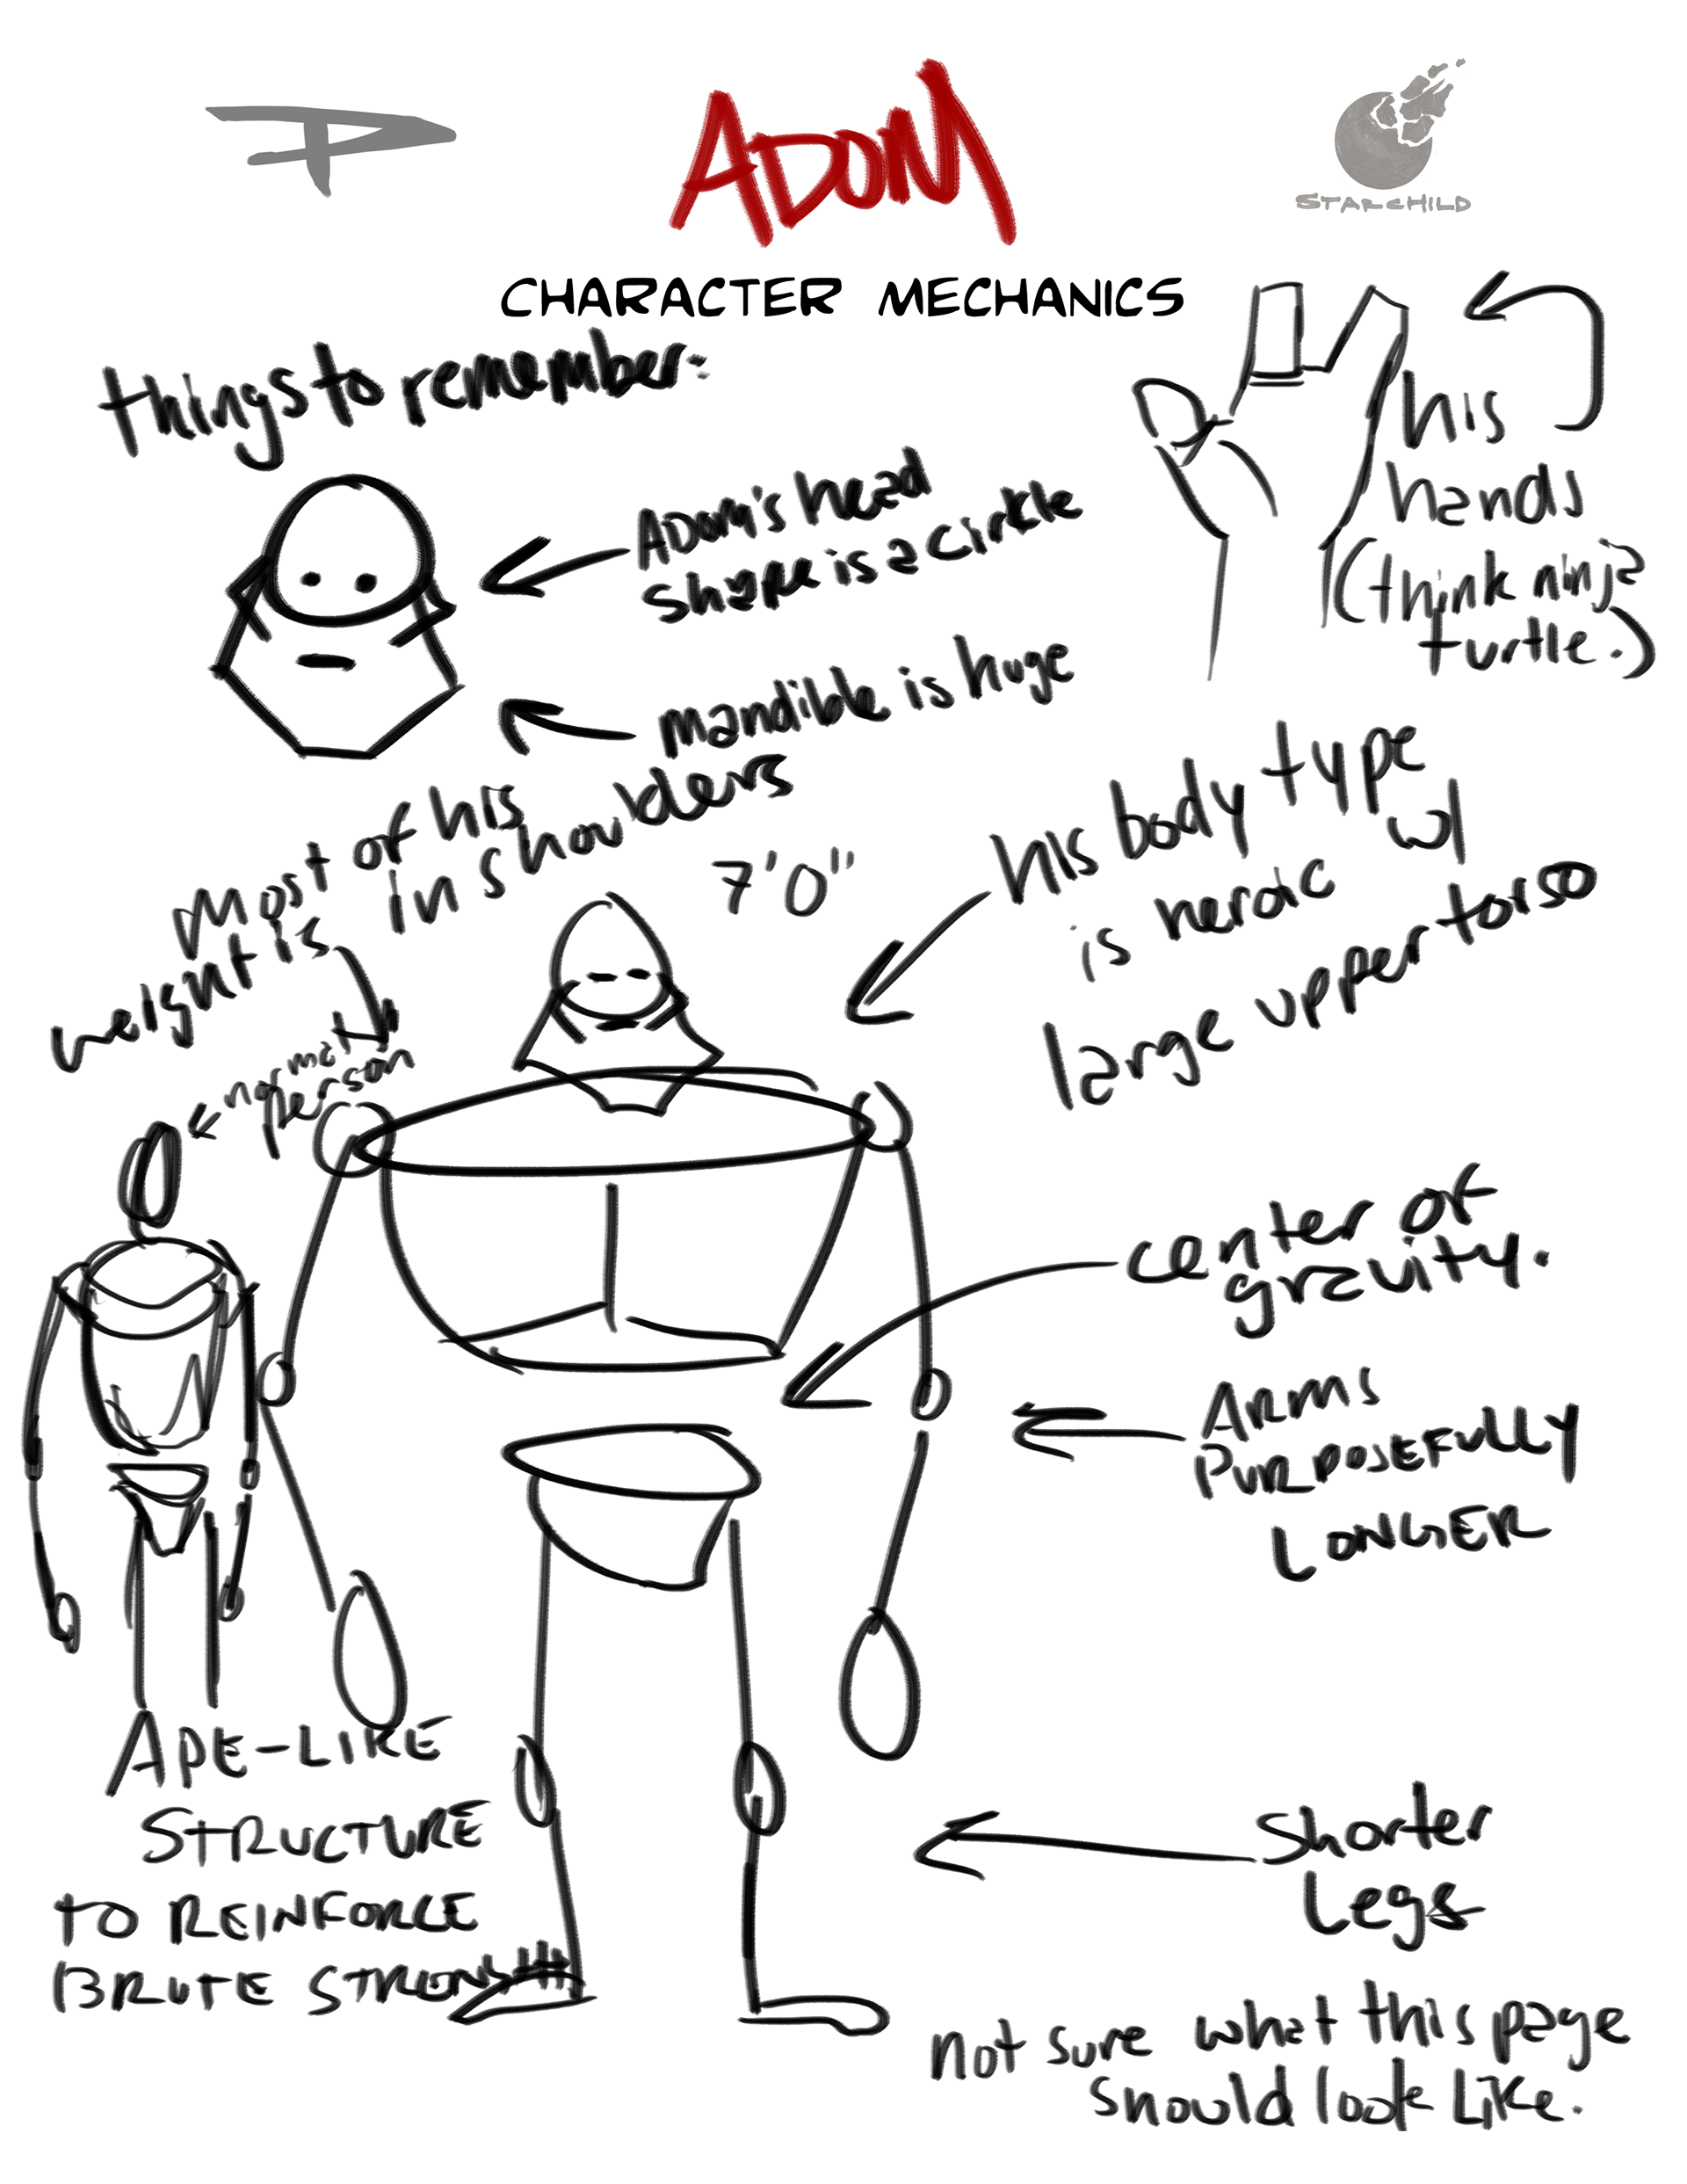 ADOM
STARCHILD
CHARACTER MECHANICS
things to remember:
his
hands
(think ninja
turtle.)
ADOM's head
shape is a cirkle
mandible is huge
Most of his
weight is in shoulders
7'0"
his body type
is heroic w/
large upper torso
normal
person
center of
gravity.
ARMS
PURPOSEFULLY
LONGER
APE-LIKE
STRUCTURE
TO REINFORCE
BRUTE
Shorter
Legs
not sure what this page
should look like.